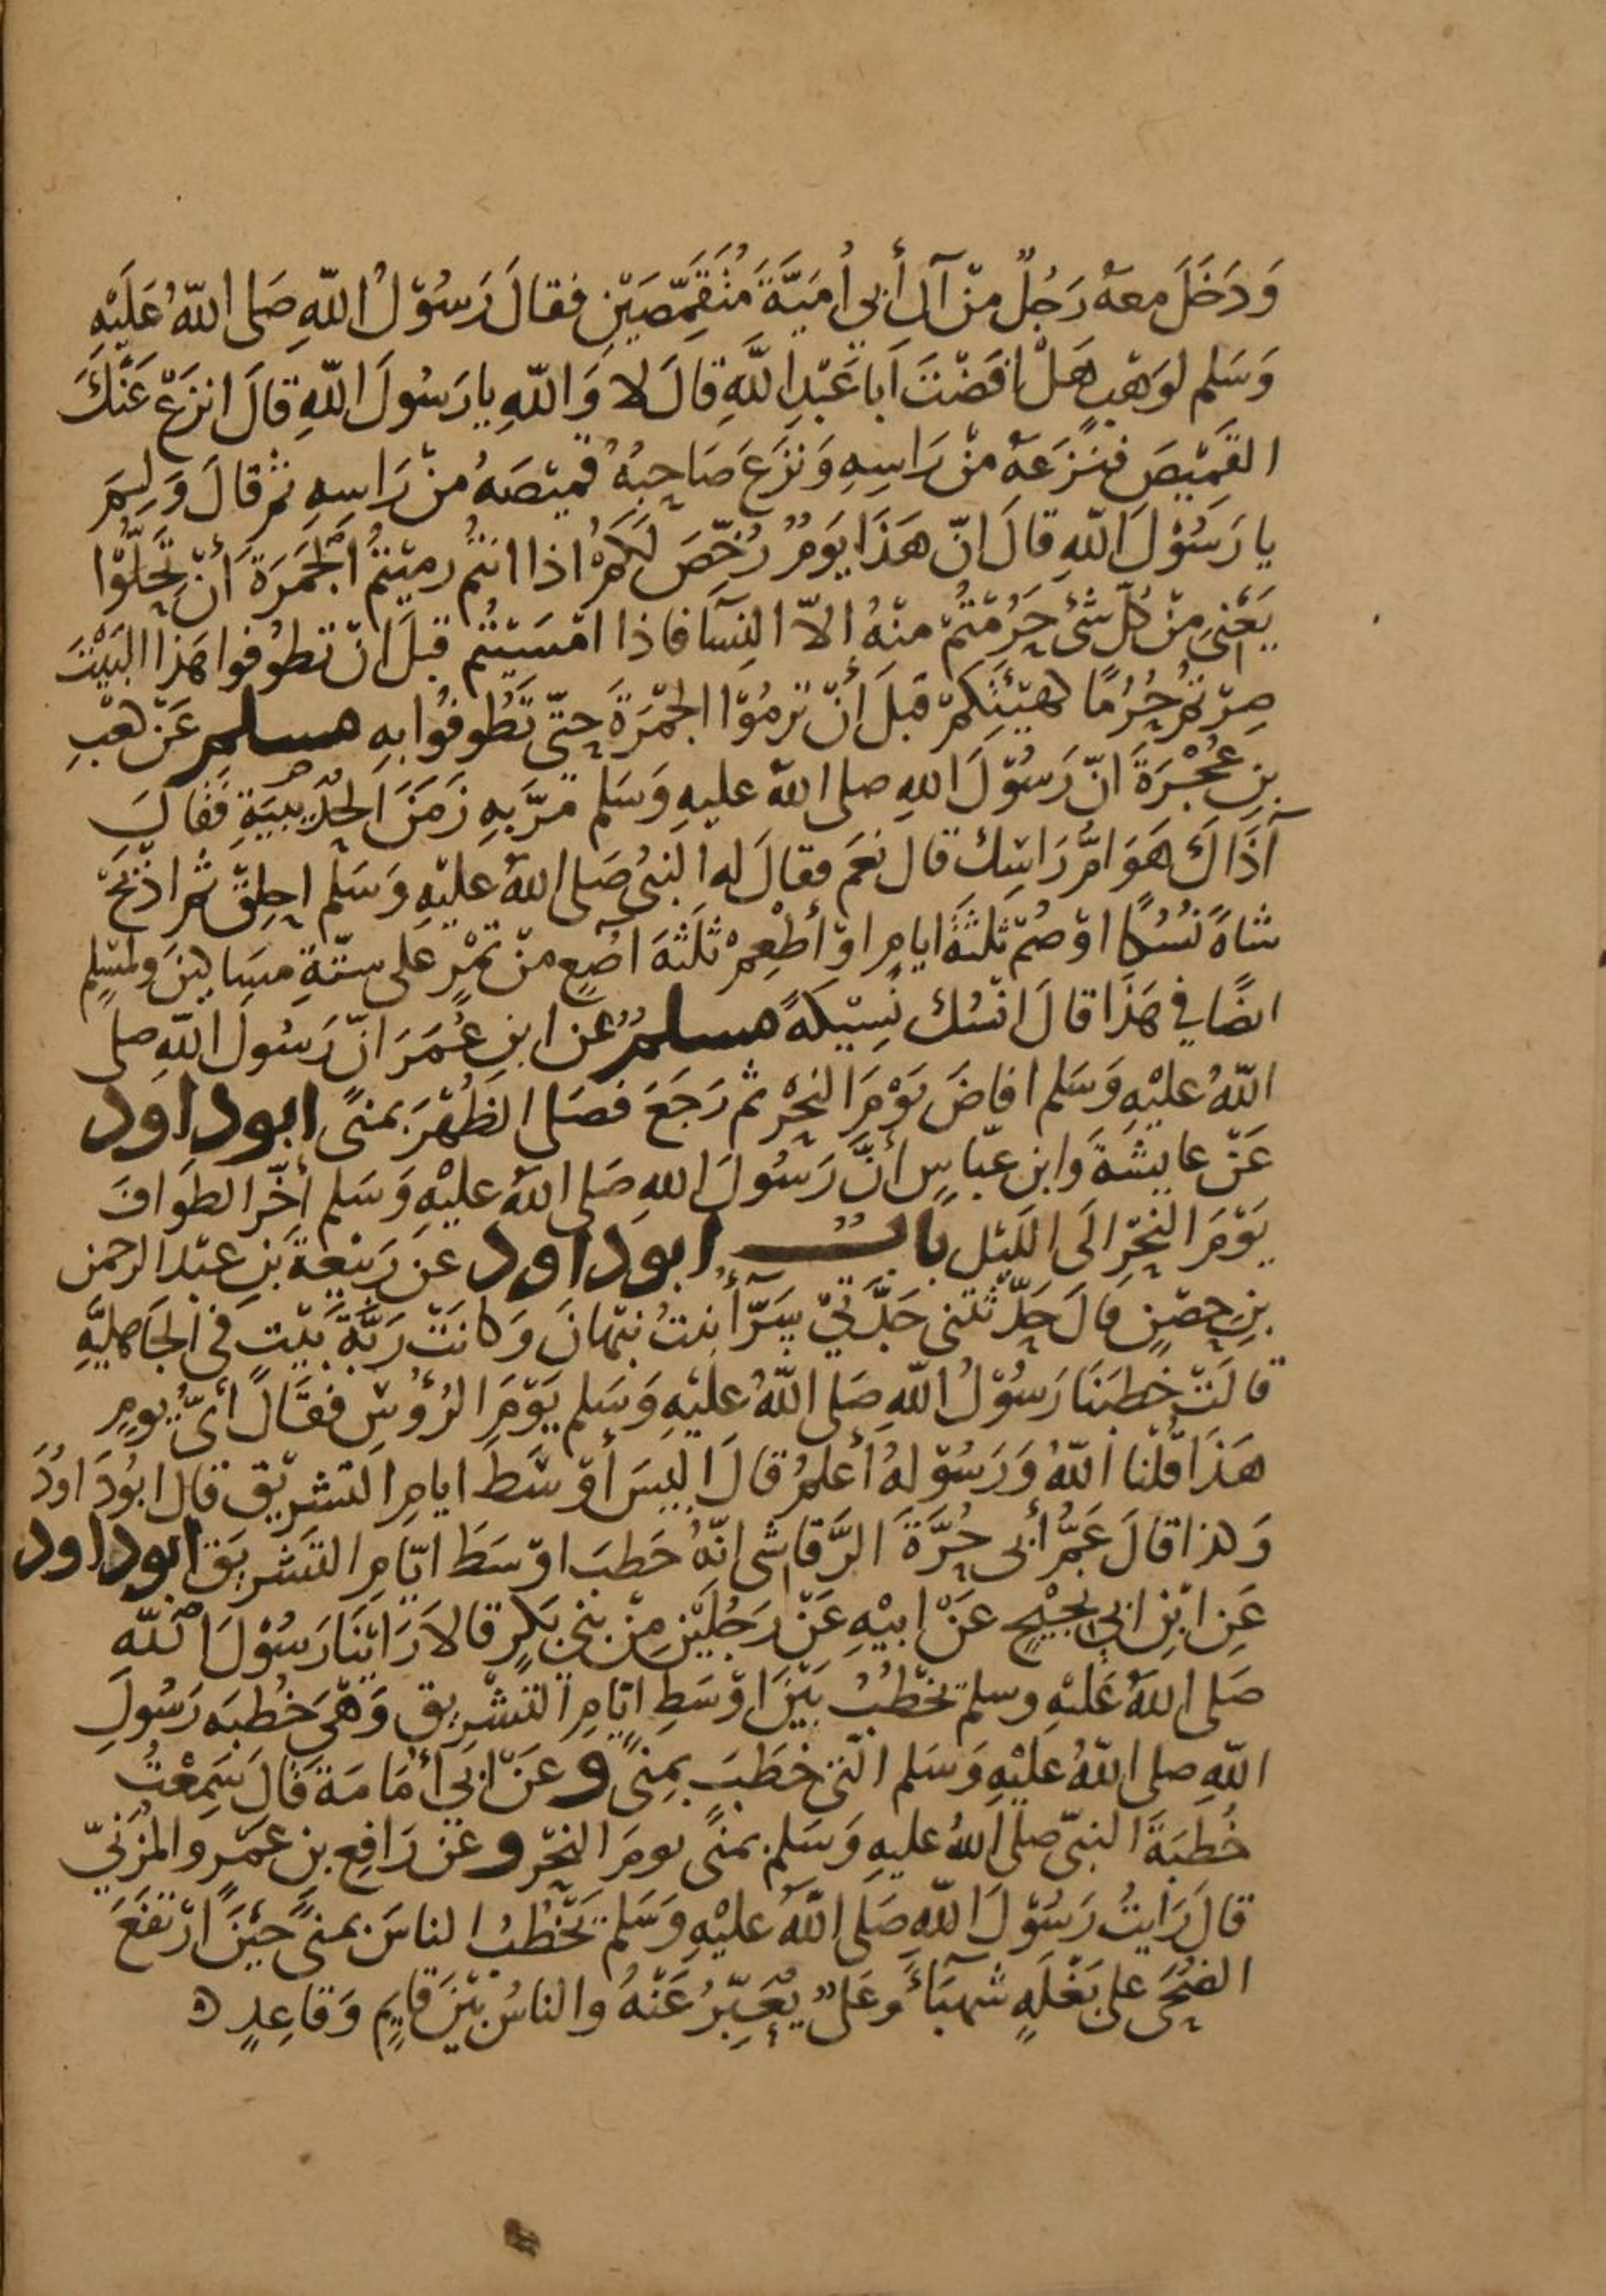 وَدَخَلَ معهُ رَجُلٌ مِنْ آلِ أَبِي أُمَيَّةَ مُتَقَمِّصَيْنِ فقالَ رَسُوْلُ اللّهِ صَلى اللّهُ عَلَيْهِ
وَسَلم لوَهْبٍ هَلْ افَضْتَ اَبا عَبْدِ اللَّهِ قالَ لا وَاللّهِ يا رَسُولَ اللّهِ قالَ انزَعْ عَنْكَ
القَمِيْصَ فنَزَعَهُ مِنْ رَاسِهِ وَنَزَعَ صَاحِبُهُ قَمِيْصَهُ مِنْ رَاسِهِ ثم قالَ وَلِمَ
يا رَسُوْلَ اللّهِ قالَ انّ هَذَا يَوْمٌ رُخِّصَ لَكمْ اذا انتُمْ رميْتُمُ الجَمَرَةَ أَنْ تَحِلُّوْا
يَعْني مِنْ كُلّ شَيْ حَرُمْتُمْ منْهُ الاّ النِسَآ فاذا امْسَيْتُم قبلَ انْ تطُوفُوا هَذا البَيْتَ
صِرْتمْ حُرُمًا كهَيْئَتِكمْ قَبلَ أنْ تَرمُوْا الجمْرَةَ حَتّى تَطُوفُوا بهِ مسلم عَنْ كعْبِ
بنِ عُجْرَةَ انّ رَسُوْلَ اللهِ صلى اللهُ عليهِ وَسَلم مَرَّ بهِ زَمَنَ الحُدَيْبيَةِ فَقالَ
آذَاكَ هَوَامُّ رَاسِك قال نعَم فقالَ له النبيُّ صَلى اللهُ عليْهِ وَسَلم احلِقْ ثُمَّ اذْبَحْ
شاةً نُسُكًا اوْ صُمْ ثَلثَةَ ايامٍ اوْ أطْعِمْ ثَلَثَةَ اصُعٍ مِنْ تمْرٍ على ستّةِ مسَاكِينَ ولمسْلِمٍ
ايضًا في هَذَا قالَ انْسُك نَسِيْكَةً مسلم عن ابنِ عُمَرَ انّ رَسُولَ اللّهِ صلى
اللّهُ عليْهِ وَسَلم افاضَ يَوْمَ النحْرِ ثم رَجَعَ فصَلى الظُهْرَ بمنًى ابو داود
عَنْ عايشَةَ وَابنِ عبّاسٍ أنَّ رَسُولَ اللهِ صَلى اللهُ عليْهِ وَسَلم أخَّرَ الطوَافَ
يَوْمَ النحْرِ الَى الليْلِ بابٌ ابوداود عَن رَبيْعةَ بنِ عبْدالرحمن
بنِ حصْنٍ قالَ حَدّثَتنى جَدَّتِي سَرَّآُ بنتُ نبْهَانَ وَكانَتْ رَبَّةَ بَيْتٍ في الجَاهليَّهِ
قالَتْ خطبَنا رَسُوْلُ اللّهِ صَلى اللّهُ عليْهِ وَسَلم يَوْمَ الرُؤُسِ فقَالَ أيُّ يومٍ
هَذَا قُلْنا اللّهُ وَرَسُوْلهُ أعلمُ قالَ اليْسَ أوْسَطَ ايامِ التشريْق قال ابُودَاوُدَ
وَكذا قالَ عَمُّ أبى حُرَّةَ الرَّقاشى انّهُ خَطبَ اوْسَطَ ايّامِ التشْريَق ابو داود
عَنِ ابْنِ ابي نَجيْحٍ عَنْ ابيْهِ عَنْ رَجُلَيْنِ مِنْ بَني بَكرٍ قالا رَايْنَا رَسُوْلَ اللّه
صَلى اللهُ عَليْهِ وسلم يخْطُبُ بَيْنَ اوْسَطِ ايّامِ التشْريق وَهْيَ خُطبَه رَسُولِ
اللّهِ صلى اللّهُ عليْهِ وَسَلم التى خطَبَ بمِنًى وعَنْ ابي أُمَامَةَ قالَ سَمِعْتُ
خُطبَةَ النبيّ صلى اللهُ عليهِ وَسَلم بمنًى يومَ النحْرِ وعَنْ رَافِعِ بنِ عَمْرٍو المُزَنيّ
قالَ رَايتُ رَسُوْلَ اللّهِ صَلى اللّهُ عليْهِ وَسَلم يَخْطُبُ الناسَ بمنًى حيْنَ ارْتفَعَ
الضُحَى على بَغْلَهٍ شهبَاءَ وعَليٌّ يُعَبِّرُ عَنْهُ والناسُ بَيْنَ قايمٍ وَقاعِدٍ